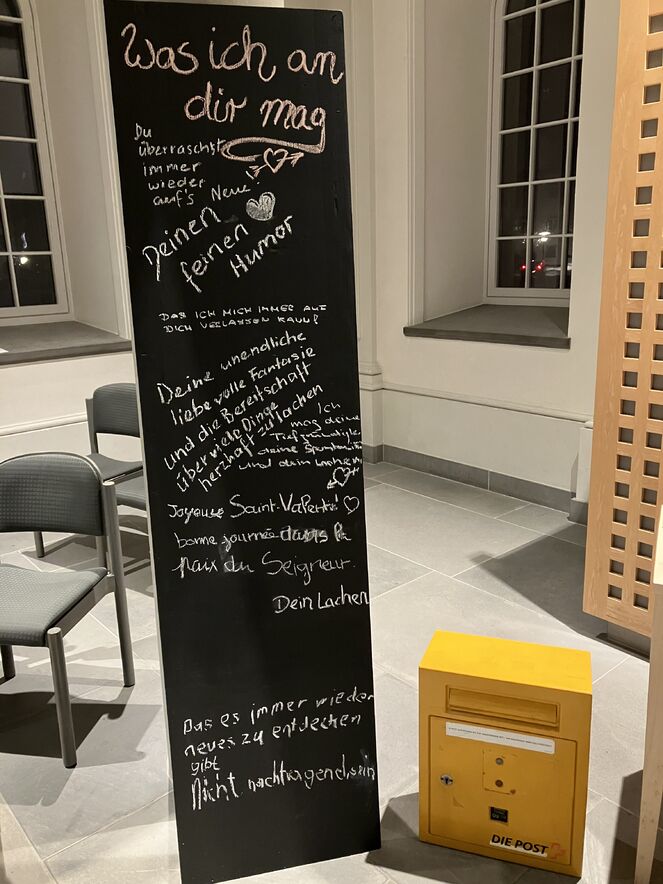 Was ich an
dir mag
Du
überraschst
immer
wieder
auf's Neue!
Deinen
feinen
Humor
DAS ICH MICH IMMER AUF
DICH VERLASSEN KANN!
Deine unendliche
liebevolle Fantasie
und die Bereitschaft
über viele Dinge
herzhaft zu lachen
Ich
mag deine
deine
und dein
Joyeuse Saint-Valentin!
bonne journée dans la
paix du Seigneur.
Dein Lachen
Das es immer wieder
neues zu entdecken
gibt
Nicht nachtragend sein
DIE POST